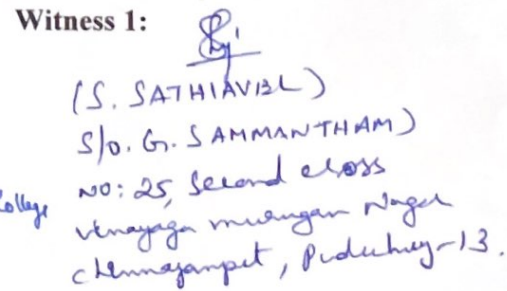 Witness 1:
(S. SATHIAVEL)
S/o. G. SAMMANTHAM)
NO: 25, Second cross
College
Vinayaga murugan Nagar
Chinnayanpet, Puducherry-13.